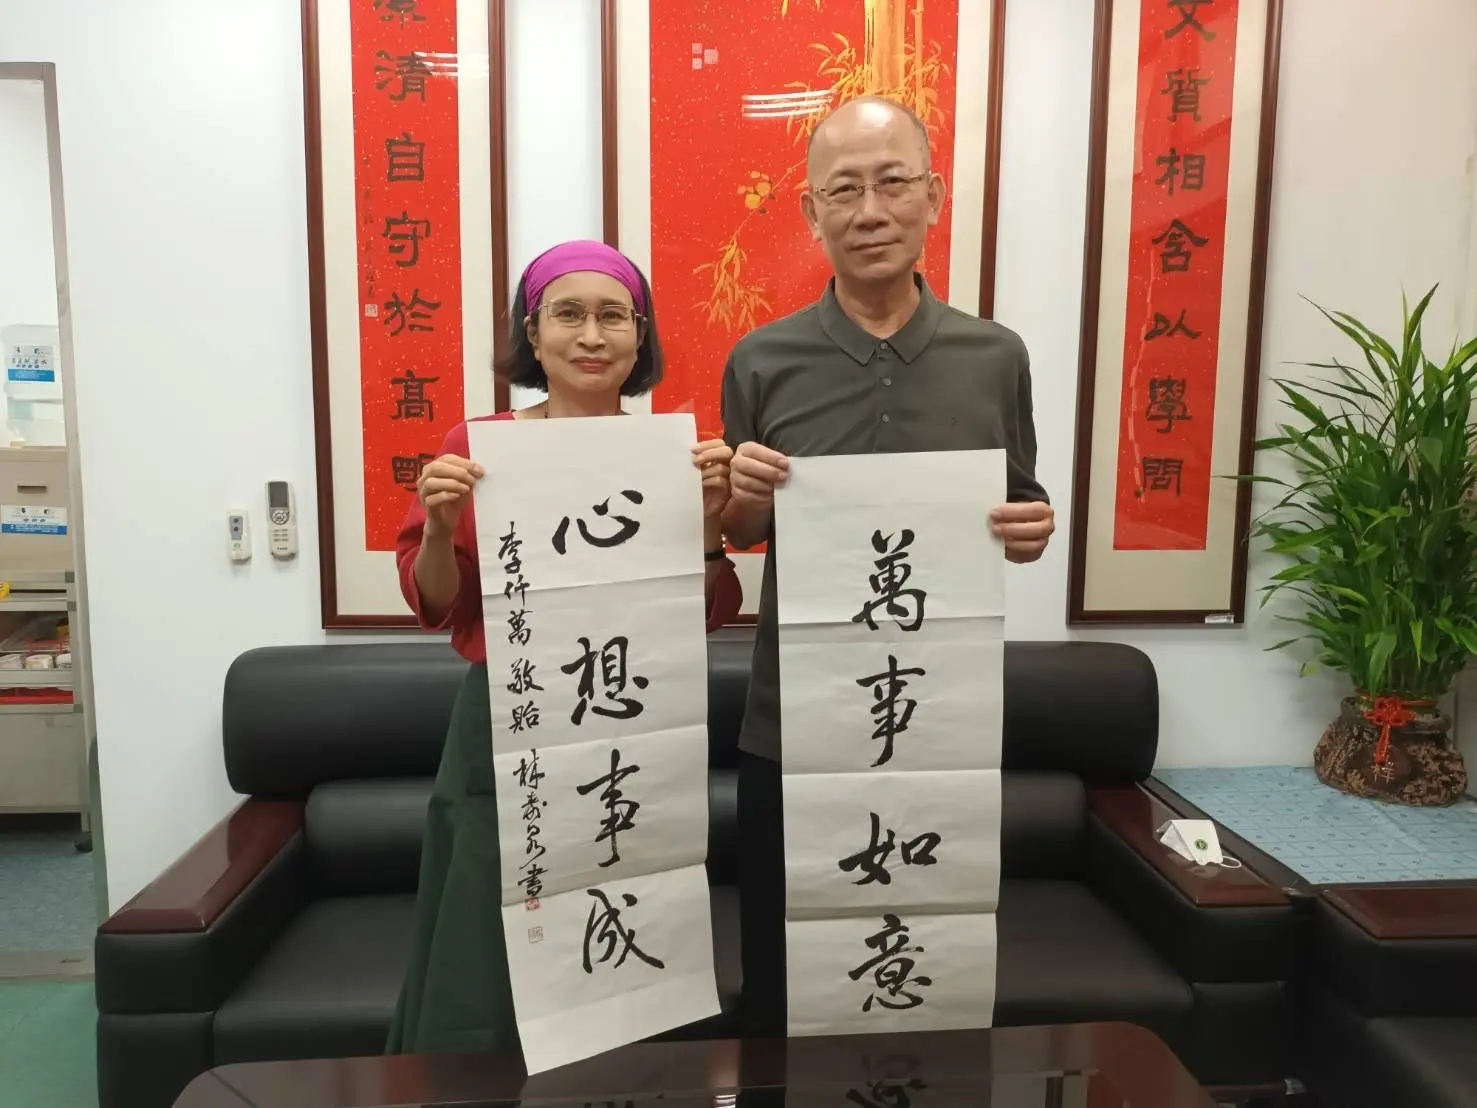 文質相含以學問
清自守於高明
萬事如意
心想事成
李仟萬敬貽
林壽泉書
祥